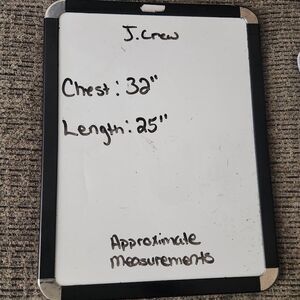 J.Crew
Chest: 32"
Length: 25"
Approximate
Measurements